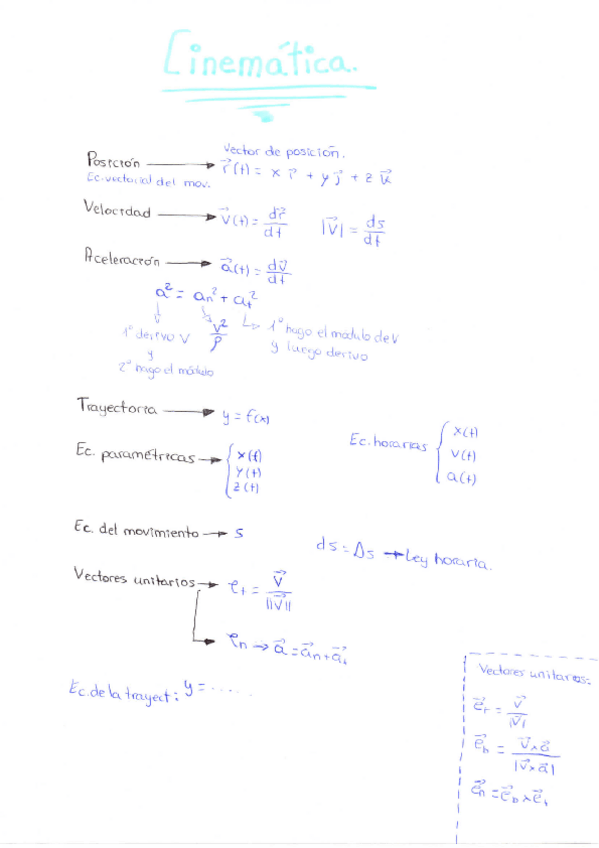 Cinemática.
Vector de posición.
Posición → r⃗(t) = x i⃗ + y j⃗ + z k⃗
Ec. vectorial del mov.
Velocidad → v⃗(t) = dr⃗/dt |v⃗| = ds/dt
Aceleración → a⃗(t) = dv⃗/dt
a² = an² + at²
1º derivo V y 2º hago el módulo
v²/ρ
1º hago el módulo de V y luego derivo
Trayectoria → y = f(x)
Ec. paramétricas → { x(t) y(t) z(t)
Ec. horarias { x(t) v(t) a(t)
Ec. del movimiento → s
ds = Δs → Ley horaria.
Vectores unitarios → et = v⃗/||v⃗||
en → a⃗ = a⃗n + a⃗t
Ec. de la trayect: y = ......
Vectores unitarios:
e⃗t = v⃗/|v⃗|
e⃗b = v⃗×a⃗/|v⃗×a⃗|
e⃗n = e⃗b × e⃗t